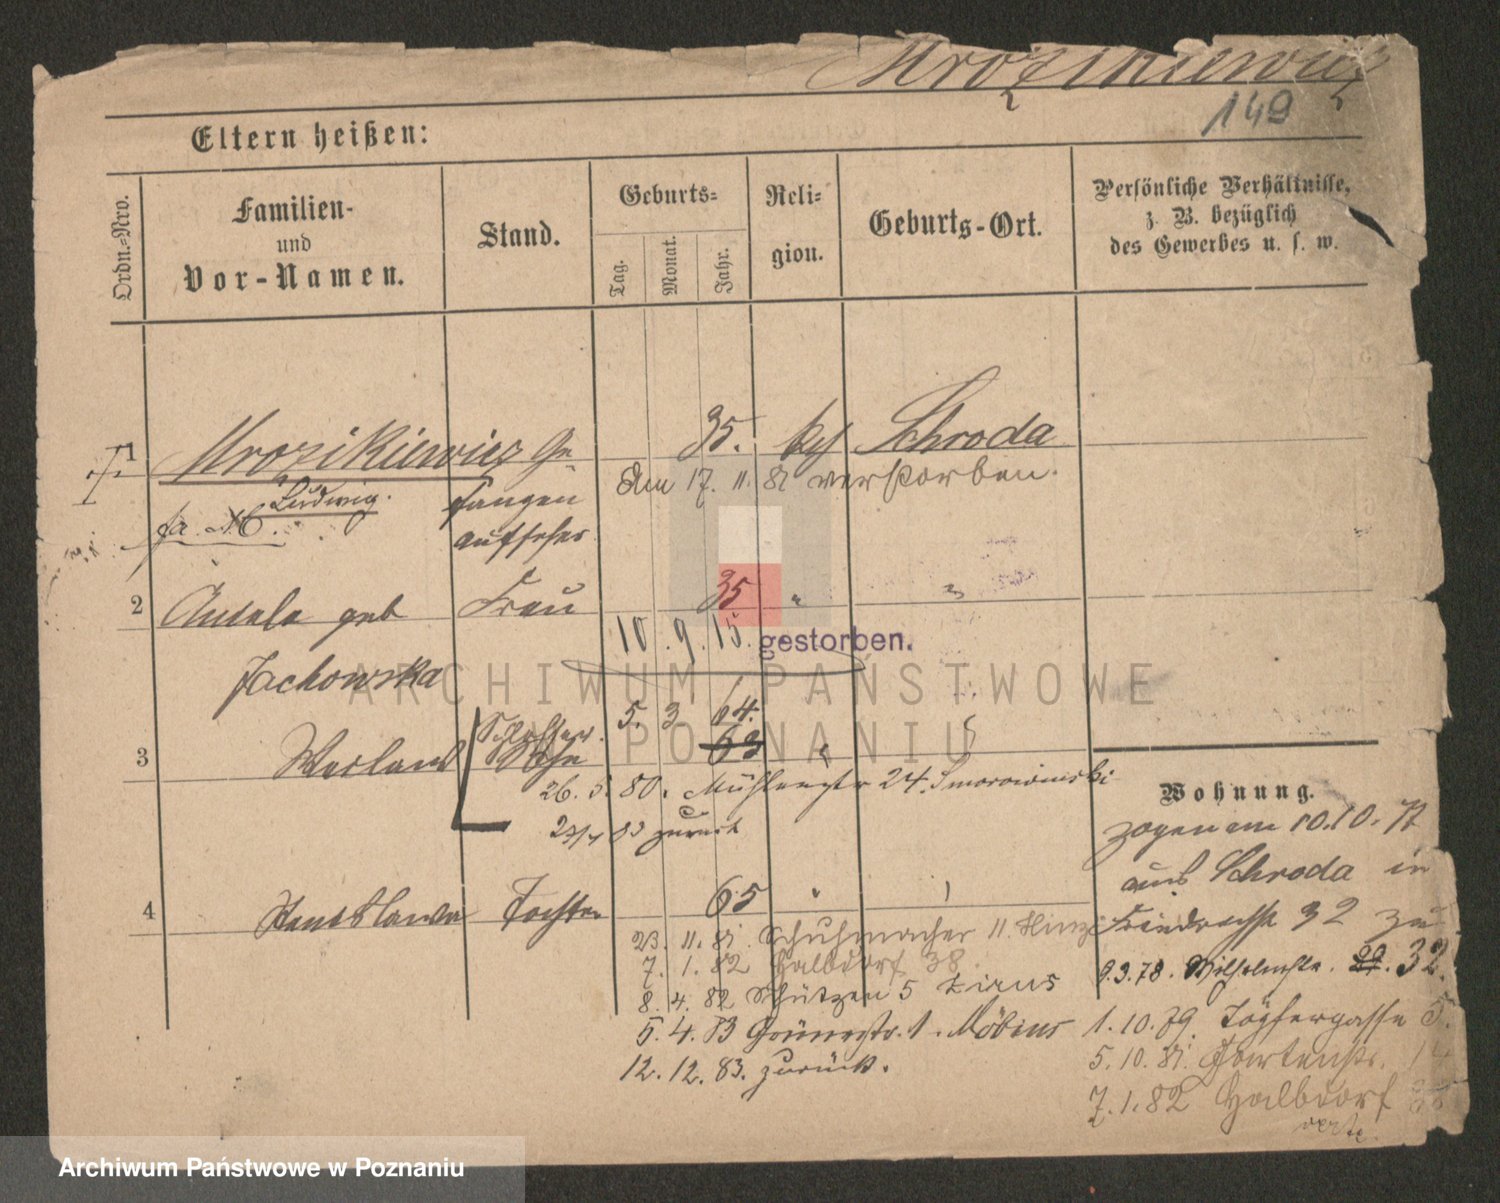 Mrozikiewicz
149
Eltern heißen:
Ordn.-Nro.
Familien-
und
Vor-Namen.
Stand.
Geburts-
Tag.
Monat.
Jahr.
Reli-
gion.
Geburts-Ort.
Persönliche Verhältnisse,
z. B. bezüglich
des Gewerbes u. s. w.
1 Mrozikiewicz Ge- 35. kath Schroda
Ludwig. fangen
aufseher
Am 17. 11. 81 verstorben.
2 Aniela geb Frau 35 "
Jachowska
10. 9. 15. gestorben.
3 Schlosser. 5. 3 64.
Sohn 63 "
26. 5. 80. Mühlenstr 24. Smorowinski
83 zurück
4 Stanislawa Tochter 65 "
23. 11. 81. Schuhmacher 11.
7. 1. 82 Halbdorf 38.
8. 4. 82 Schützen 5
5. 4. 83 Grünestr. 1. Möbius
12. 12. 83. zurück.
Wohnung.
zogen am 10.10.77
aus Schroda in
32 zu
9.3.78. Wilhelmstr. 32.
1.10.79. Töpfergasse 5.
5.10.81. Gartenstr.
7.1.82 Halbdorf 38
ARCHIWUM PAŃSTWOWE
W POZNANIU
Archiwum Państwowe w Poznaniu